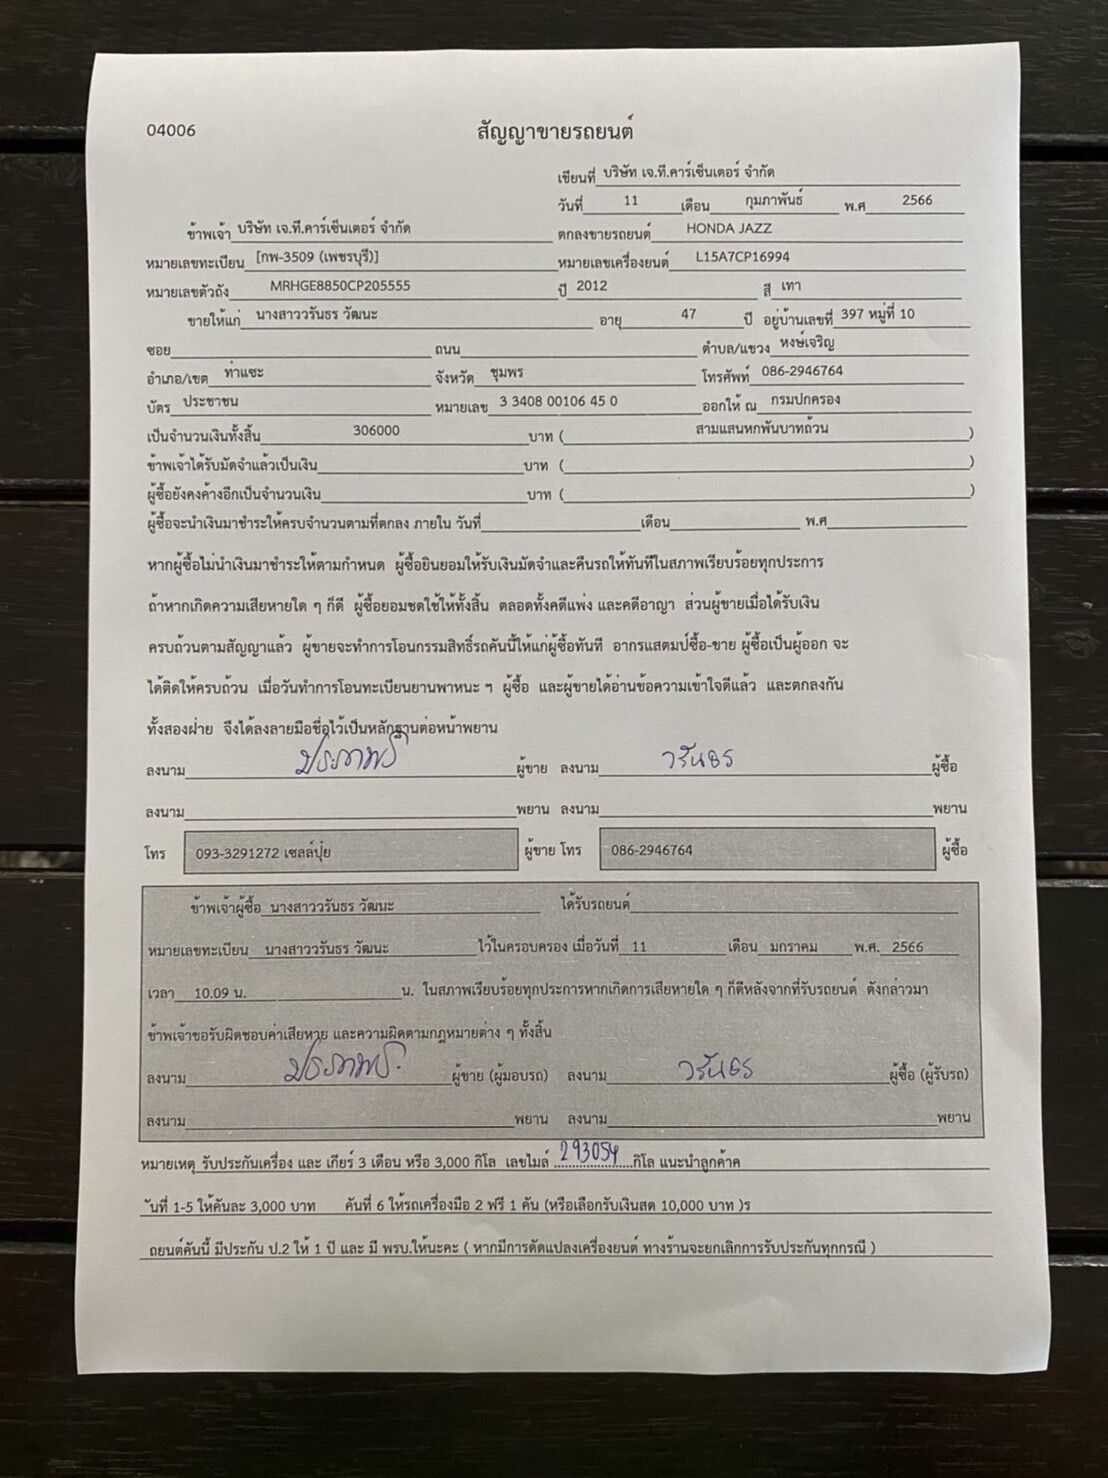 04006
สัญญาขายรถยนต์
เขียนที่ บริษัท เจ.ที.คาร์เซ็นเตอร์ จำกัด
วันที่ 11 เดือน กุมภาพันธ์ พ.ศ 2566
ข้าพเจ้า บริษัท เจ.ที.คาร์เซ็นเตอร์ จำกัด ตกลงขายรถยนต์ HONDA JAZZ
หมายเลขทะเบียน [กพ-3509 (เพชรบุรี)] หมายเลขเครื่องยนต์ L15A7CP16994
หมายเลขตัวถัง MRHGE8850CP205555 ปี 2012 สี เทา
ขายให้แก่ นางสาววรันธร วัฒนะ อายุ 47 ปี อยู่บ้านเลขที่ 397 หมู่ที่ 10
ซอย ถนน ตำบล/แขวง หงษ์เจริญ
อำเภอ/เขต ท่าแซะ จังหวัด ชุมพร โทรศัพท์ 086-2946764
บัตร ประชาชน หมายเลข 3 3408 00106 45 0 ออกให้ ณ กรมปกครอง
เป็นจำนวนเงินทั้งสิ้น 306000 บาท ( สามแสนหกพันบาทถ้วน )
ข้าพเจ้าได้รับมัดจำแล้วเป็นเงิน บาท ( )
ผู้ซื้อยังคงค้างอีกเป็นจำนวนเงิน บาท ( )
ผู้ซื้อจะนำเงินมาชำระให้ครบจำนวนตามที่ตกลง ภายใน วันที่ เดือน พ.ศ
หากผู้ซื้อไม่นำเงินมาชำระให้ตามกำหนด ผู้ซื้อยินยอมให้รับเงินมัดจำและคืนรถให้ทันทีในสภาพเรียบร้อยทุกประการ
ถ้าหากเกิดความเสียหายใด ๆ ก็ดี ผู้ซื้อยอมชดใช้ให้ทั้งสิ้น ตลอดทั้งคดีแพ่ง และคดีอาญา ส่วนผู้ขายเมื่อได้รับเงิน
ครบถ้วนตามสัญญาแล้ว ผู้ขายจะทำการโอนกรรมสิทธิ์รถคันนี้ให้แก่ผู้ซื้อทันที อากรแสตมป์ซื้อ-ขาย ผู้ซื้อเป็นผู้ออก จะ
ได้ติดให้ครบถ้วน เมื่อวันทำการโอนทะเบียนยานพาหนะ ฯ ผู้ซื้อ และผู้ขายได้อ่านข้อความเข้าใจดีแล้ว และตกลงกัน
ทั้งสองฝ่าย จึงได้ลงลายมือชื่อไว้เป็นหลักฐานต่อหน้าพยาน
ลงนาม ประภาพร ผู้ขาย ลงนาม วรันธร ผู้ซื้อ
ลงนาม พยาน ลงนาม พยาน
โทร 093-3291272 เซลล์ปุ๋ย ผู้ขาย โทร 086-2946764 ผู้ซื้อ
ข้าพเจ้าผู้ซื้อ นางสาววรันธร วัฒนะ ได้รับรถยนต์
หมายเลขทะเบียน นางสาววรันธร วัฒนะ ไว้ในครอบครอง เมื่อวันที่ 11 เดือน มกราคม พ.ศ. 2566
เวลา 10.09 น. น. ในสภาพเรียบร้อยทุกประการหากเกิดการเสียหายใด ๆ ก็ดีหลังจากที่รับรถยนต์ ดังกล่าวมา
ข้าพเจ้าขอรับผิดชอบค่าเสียหาย และความผิดตามกฎหมายต่าง ๆ ทั้งสิ้น
ลงนาม ประภาพร ผู้ขาย (ผู้มอบรถ) ลงนาม วรันธร ผู้ซื้อ (ผู้รับรถ)
ลงนาม พยาน ลงนาม พยาน
หมายเหตุ รับประกันเครื่อง และ เกียร์ 3 เดือน หรือ 3,000 กิโล เลขไมล์ 293054 กิโล แนะนำลูกค้าค
ันที่ 1-5 ให้คันละ 3,000 บาท คันที่ 6 ให้รถเครื่องมือ 2 ฟรี 1 คัน (หรือเลือกรับเงินสด 10,000 บาท )ร
ถยนต์คันนี้ มีประกัน ป.2 ให้ 1 ปี และ มี พรบ.ให้นะคะ ( หากมีการดัดแปลงเครื่องยนต์ ทางร้านจะยกเลิกการรับประกันทุกกรณี )